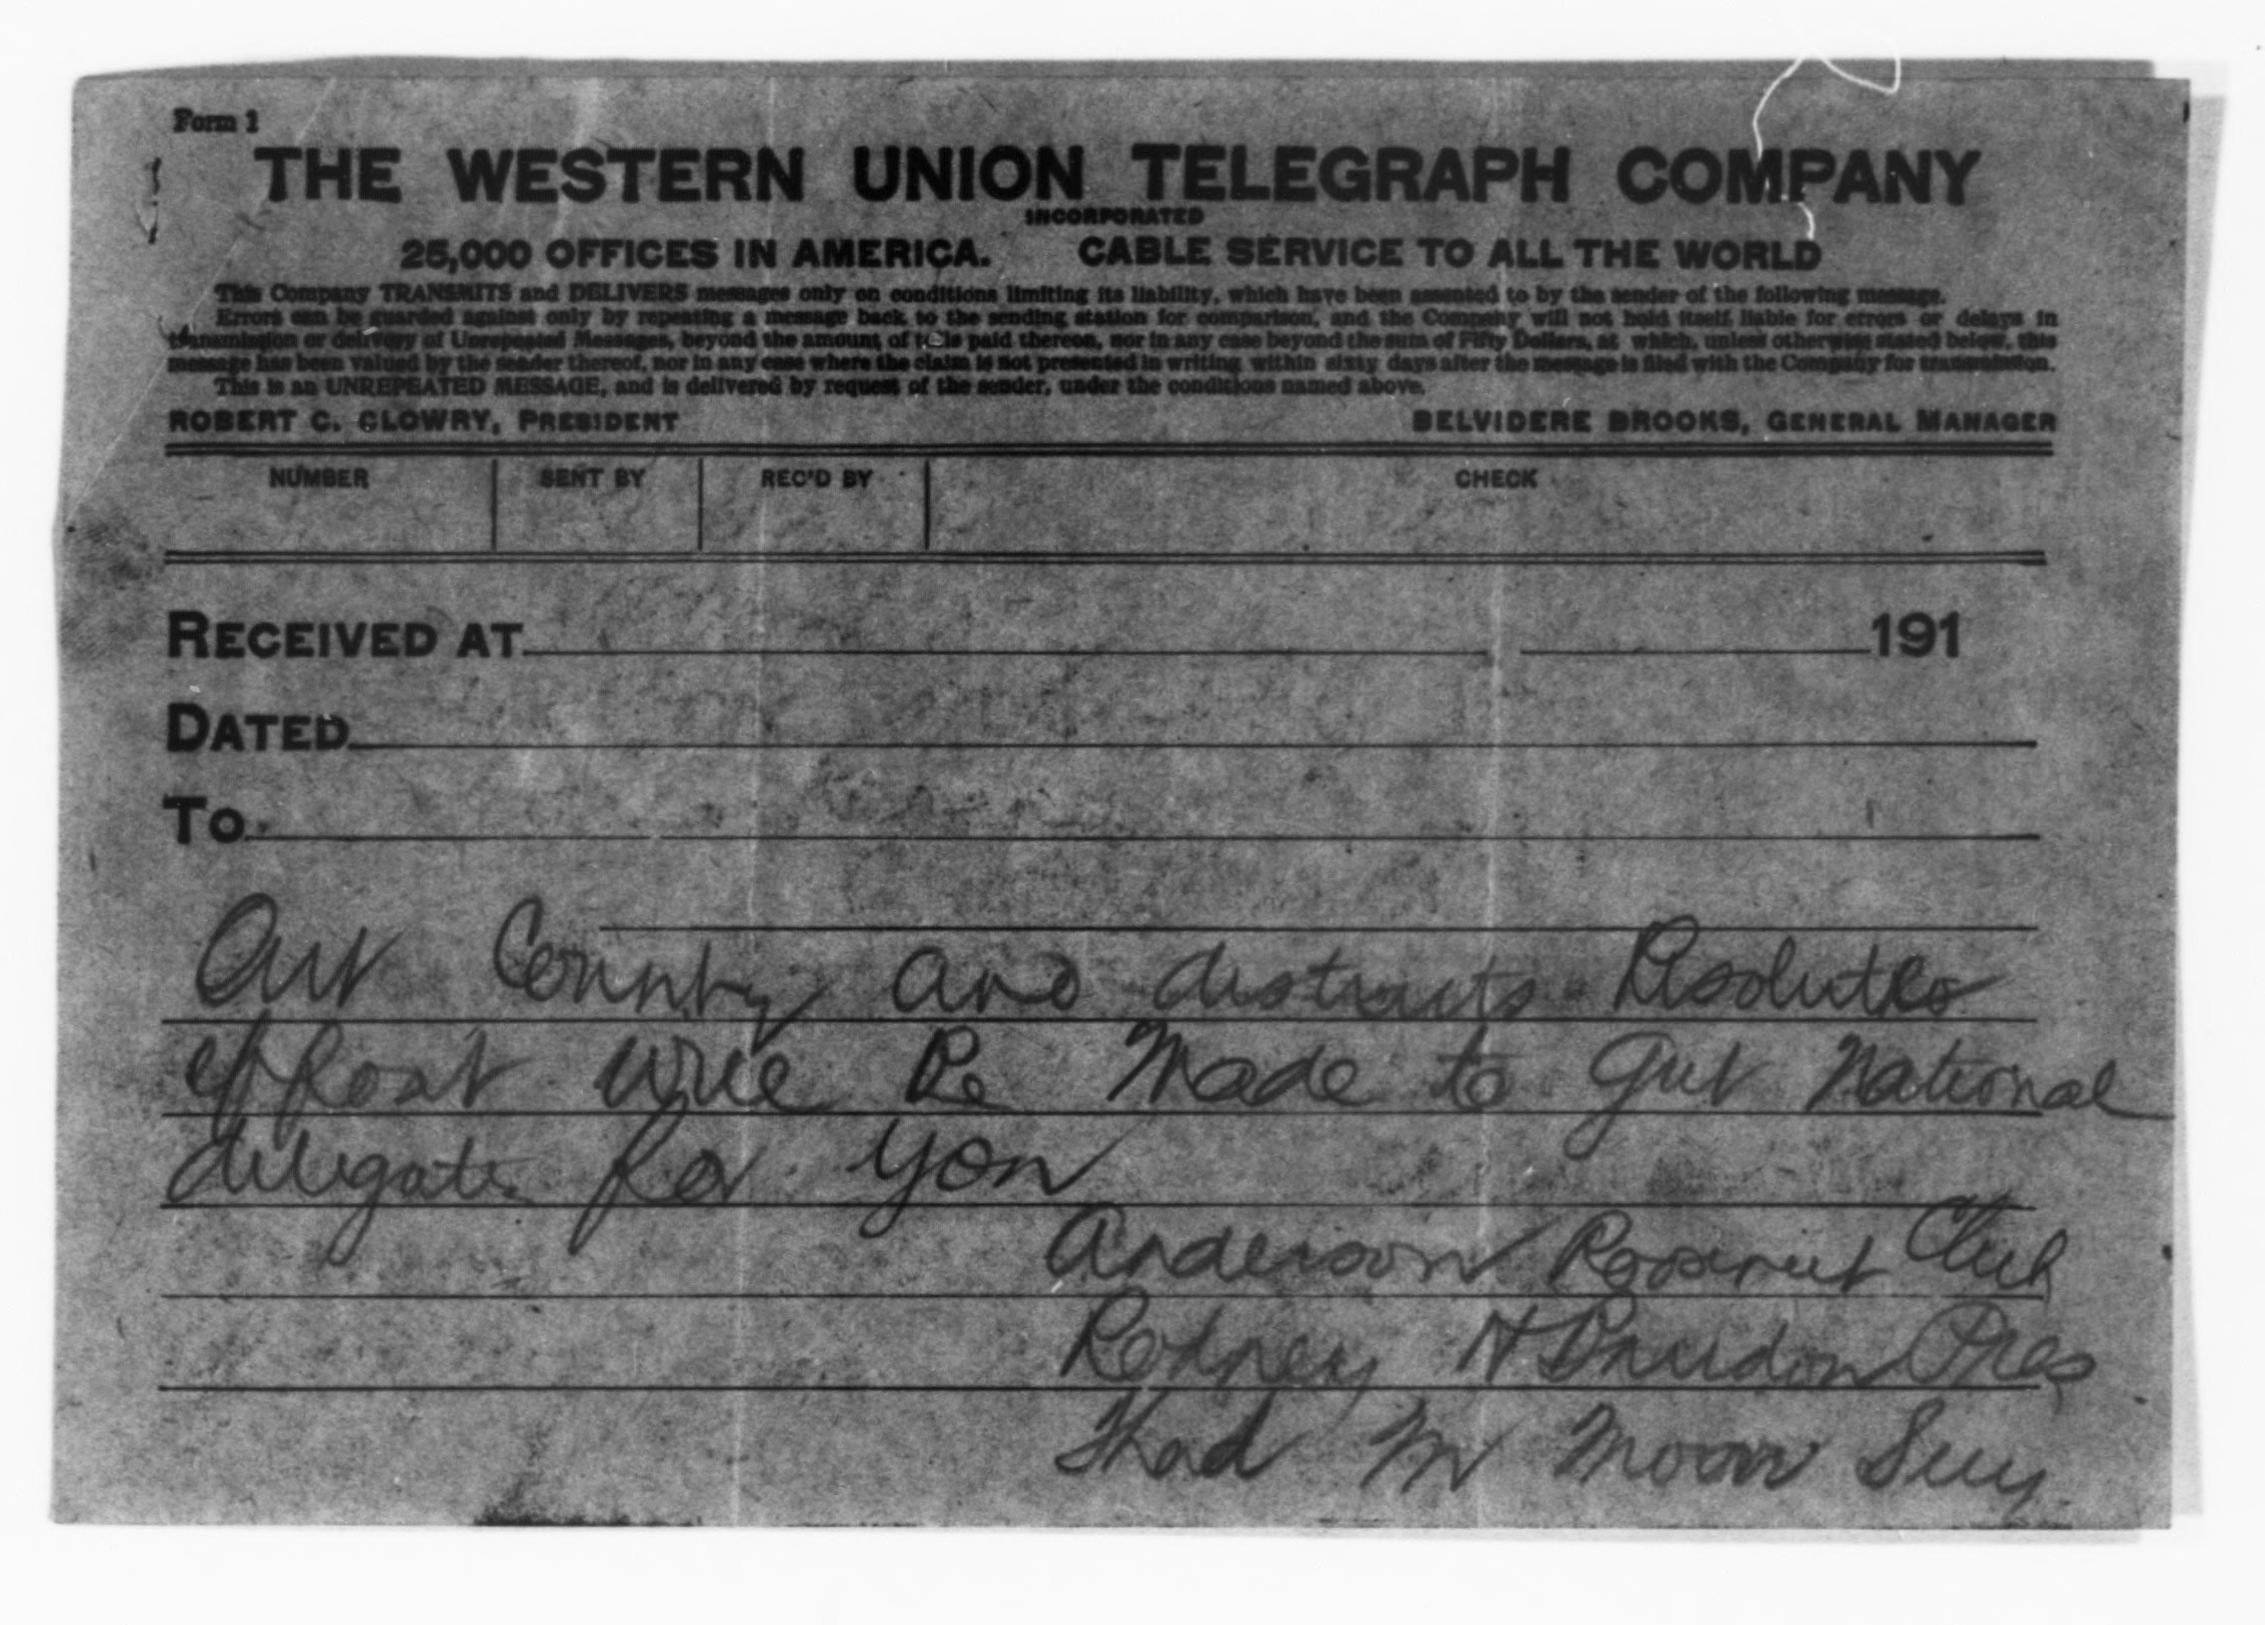 Form 1
THE WESTERN UNION TELEGRAPH COMPANY
INCORPORATED
25,000 OFFICES IN AMERICA. CABLE SERVICE TO ALL THE WORLD
This Company TRANSMITS and DELIVERS messages only on conditions limiting its liability, which have been assented to by the sender of the following message.
Errors can be guarded against only by repeating a message back to the sending station for comparison, and the Company will not hold itself liable for errors or delays in
transmission or delivery of Unrepeated Messages, beyond the amount of tolls paid thereon, nor in any case beyond the sum of Fifty Dollars, at which, unless otherwise stated below, this
message has been valued by the sender thereof, nor in any case where the claim is not presented in writing within sixty days after the message is filed with the Company for transmission.
This is an UNREPEATED MESSAGE, and is delivered by request of the sender, under the conditions named above.
ROBERT C. CLOWRY, PRESIDENT BELVIDERE BROOKS, GENERAL MANAGER
NUMBER SENT BY REC'D BY CHECK
RECEIVED AT 191
DATED
TO
Our County and districts
effort will Be Made to get National
delegates for you
Anderson Roosevelt Club
Rodney H Brandon Pres
Thad M Moore Secy